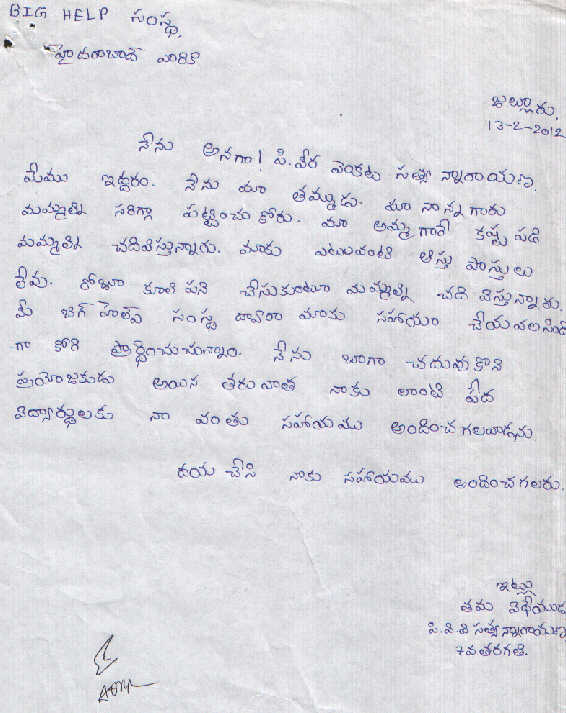 BIG HELP సంస్థ,
హైదరాబాద్ వారికి
జుల్లూరు,
13-2-2012
నేను అనగా! పి.వీర వెంకట సత్య న్నారాయణ.
మేము ఇద్దరం. నేను మా తమ్ముడు. మా నాన్న గారు
మమ్మల్ని సరిగ్గా పట్టించు కోరు. మా అమ్మ గారే కష్ట పడి
మమ్మల్ని చదివిస్తున్నారు. మాకు ఎటువంటి ఆస్తి పాస్తులు
లేవు. రోజూ కూలి పని చేసుకుంటూ మమ్మల్ని చది విస్తున్నారు.
మీ బిగ్ హెల్ప్ సంస్థ ద్వారా మాకు సహాయం చేయవలసింది
గా కోరి ప్రార్ధించుచున్నాం. నేను బాగా చదువు కొని
ప్రయోజకుడు అయిన తరువాత నాకు లాంటి పేద
విద్యార్థులకు నా వంతు సహాయము అందించ గలవాడను
దయ చేసి నాకు సహాయము అందించగలరు.
ఇట్లు
తమ విధేయుడు
పి.వి.వి సత్య న్నారాయణ
7వ తరగతి.